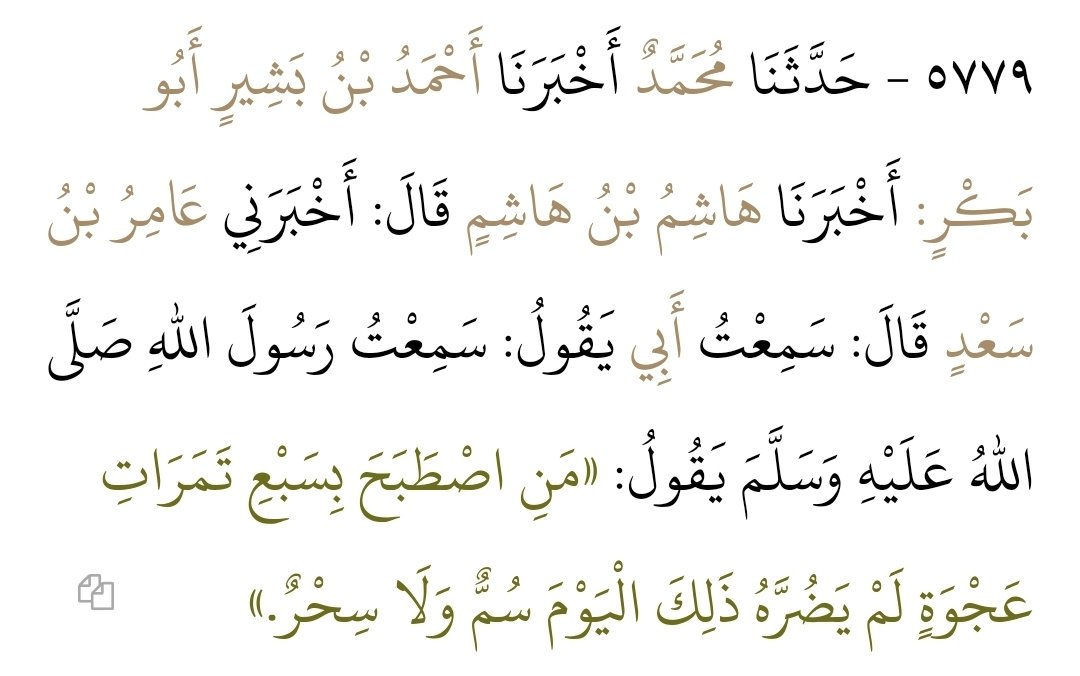 ٥٧٧٩ - حَدَّثَنَا مُحَمَّدٌ أَخْبَرَنَا أَحْمَدُ بْنُ بَشِيرٍ أَبُو
بَكْرٍ: أَخْبَرَنَا هَاشِمُ بْنُ هَاشِمٍ قَالَ: أَخْبَرَنِي عَامِرُ بْنُ
سَعْدٍ قَالَ: سَمِعْتُ أَبِي يَقُولُ: سَمِعْتُ رَسُولَ اللهِ صَلَّى
اللهُ عَلَيْهِ وَسَلَّمَ يَقُولُ: «مَنِ اصْطَبَحَ بِسَبْعِ تَمَرَاتِ
عَجْوَةٍ لَمْ يَضُرَّهُ ذَلِكَ الْيَوْمَ سُمٌّ وَلَا سِحْرٌ.»